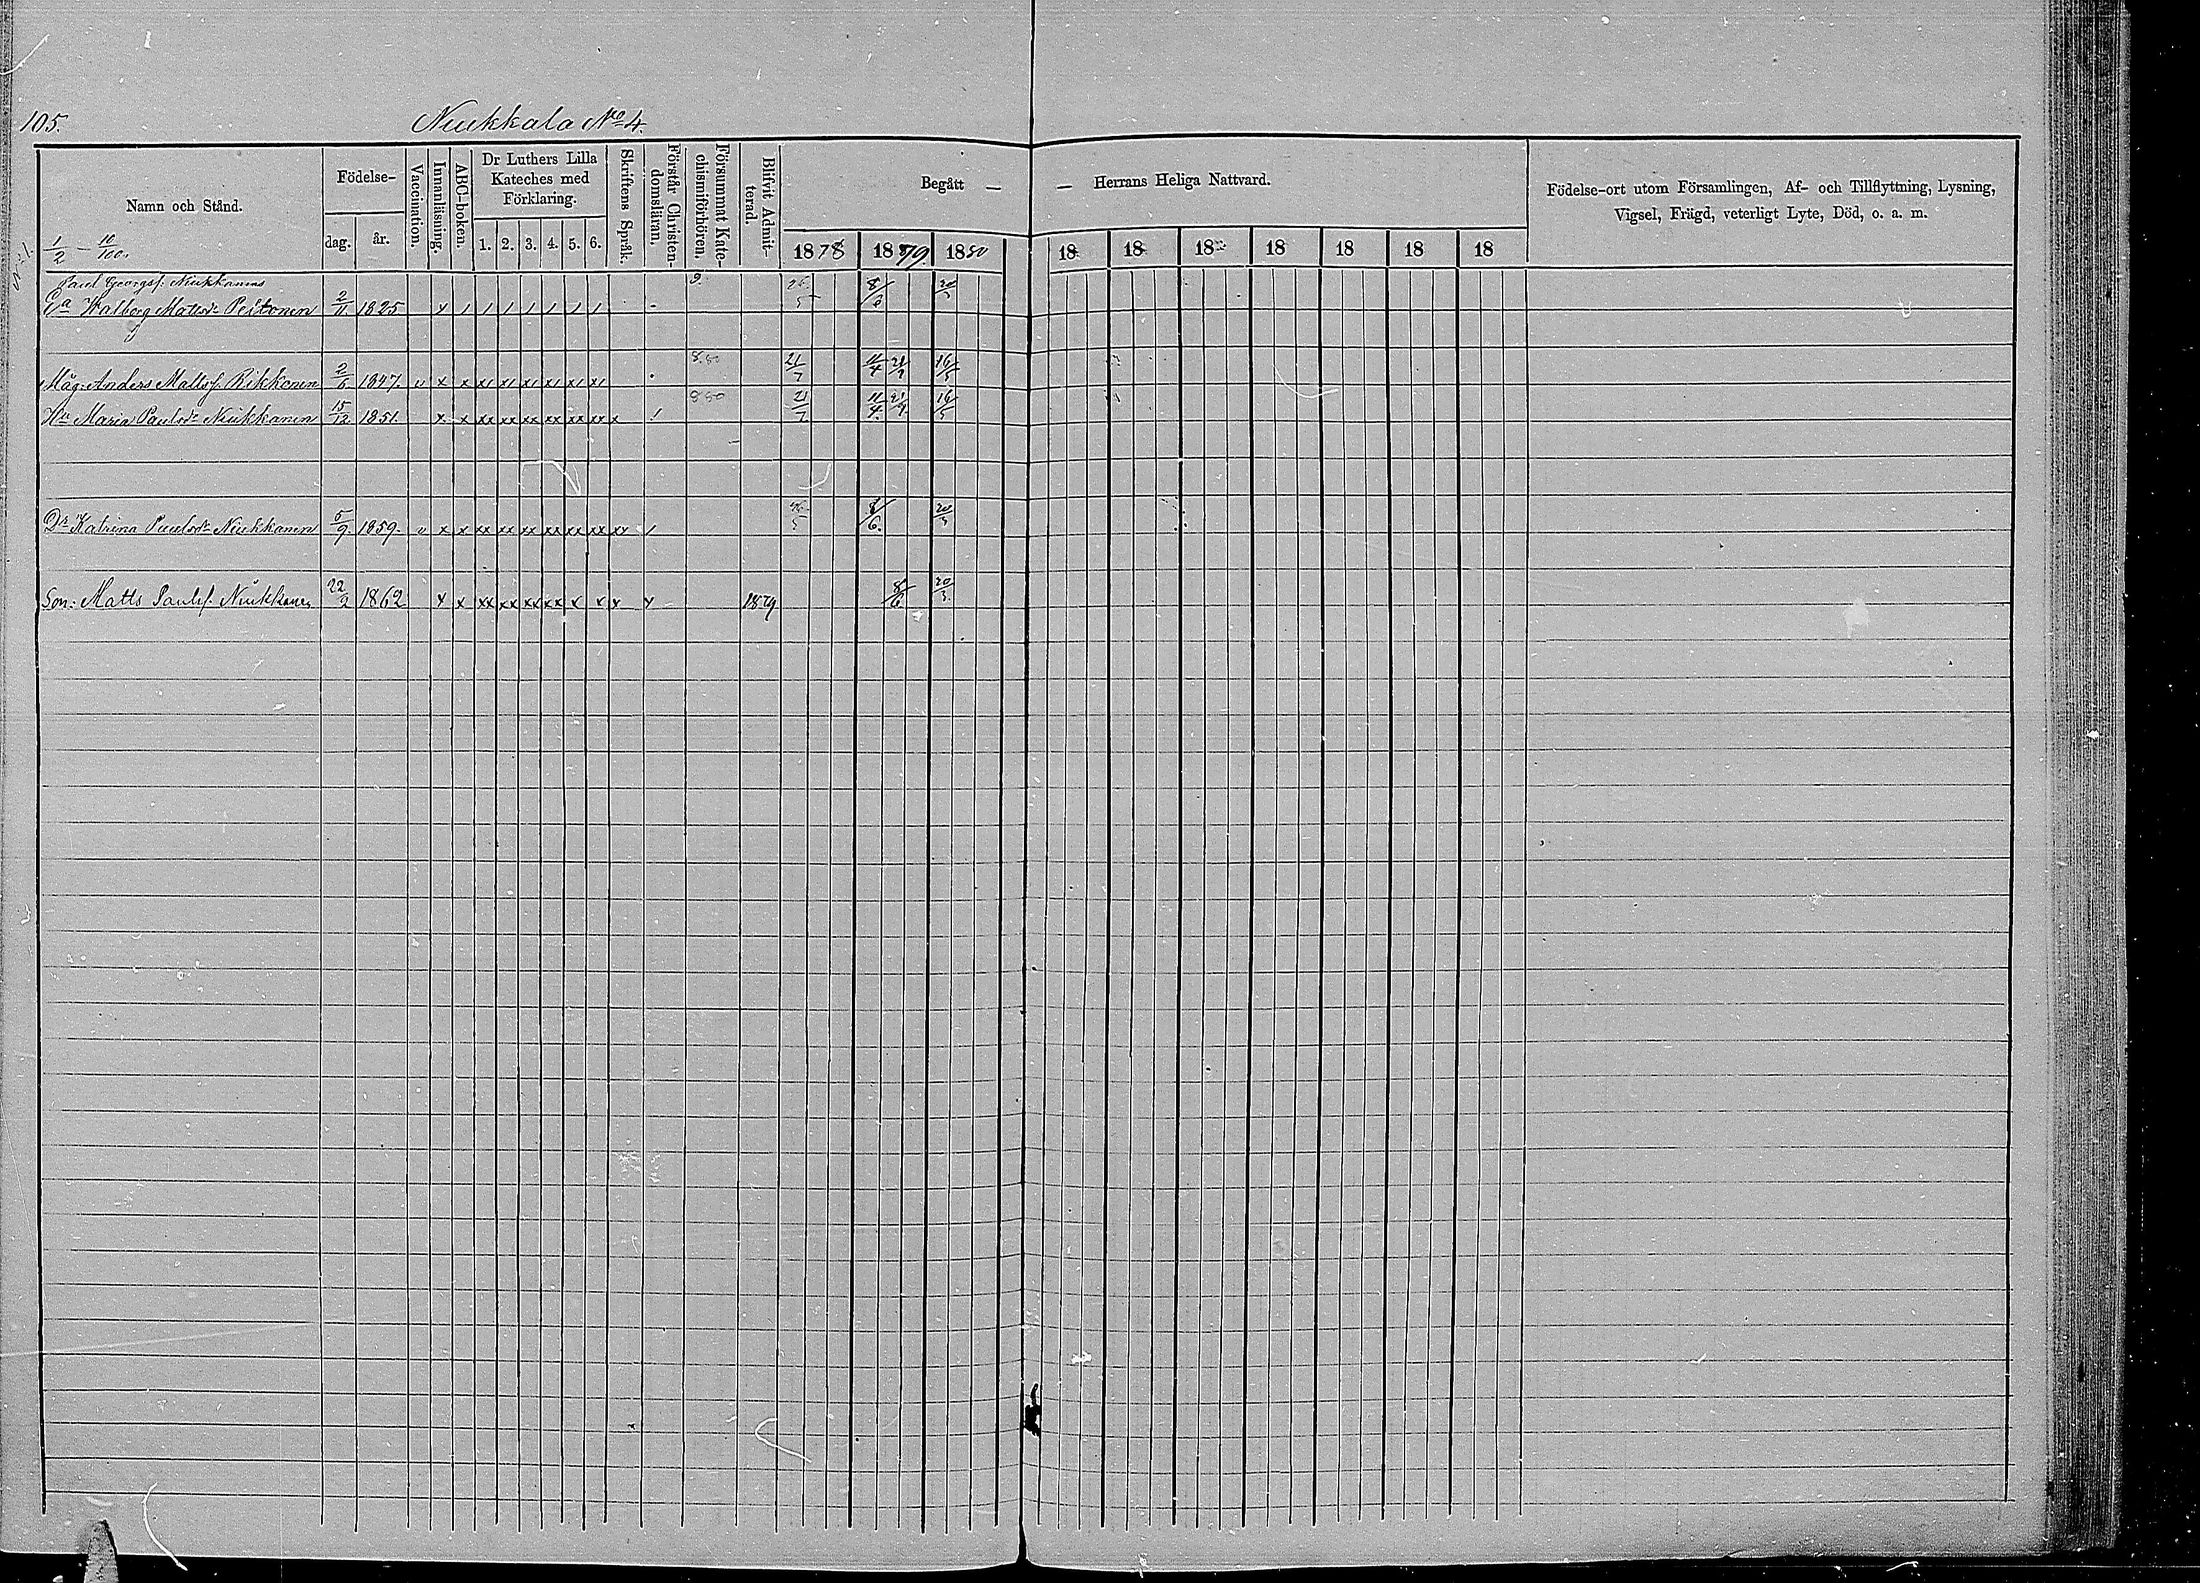 105.
Niukkala No 4.
Namn och Stånd.
1/2 — 16/100.
Födelse-
dag.
år.
Vaccination.
Innanläsning.
ABC-boken.
Dr Luthers Lilla
Kateches med
Förklaring.
1. 2. 3. 4. 5. 6.
Skriftens Språk.
Förstår Christen-
domsläran.
Försummat Kate-
chismiförhören.
Blifvit Admit-
terad.
Begått —
— Herrans Heliga Nattvard.
1878 1879 1880 18 18 18 18 18 18 18
Födelse-ort utom Församlingen, Af- och Tillflyttning, Lysning,
Vigsel, Frägd, veterligt Lyte, Död, o. a. m.
Paul Georgsf. Niukkanens
Ea Walborg Mattsdr Peitonen 2/11 1825 x / / / / / / / 8/6
Måg: Anders Mattsf. Rikkonen 2/6 1847. v x x x/ x/ x/ x/ x/ x/ 8.80 21/7 11/4 21/9 16/5
Hu Maria Paulsdr Niukkanen 15/12 1851. x x xx xx xx xx xx xx x / 8 80 21/7 11/4 21/9 16/5
Dr Katrina Paulsdr Niukkanen 5/9 1859. v x x xx xx xx xx xx xx xx / 8/6. 20/3
Son: Matts Paulsf. Niukkanen 22/2 1862 x x xx xx xx xx x x x x 1879 8/6 20/3